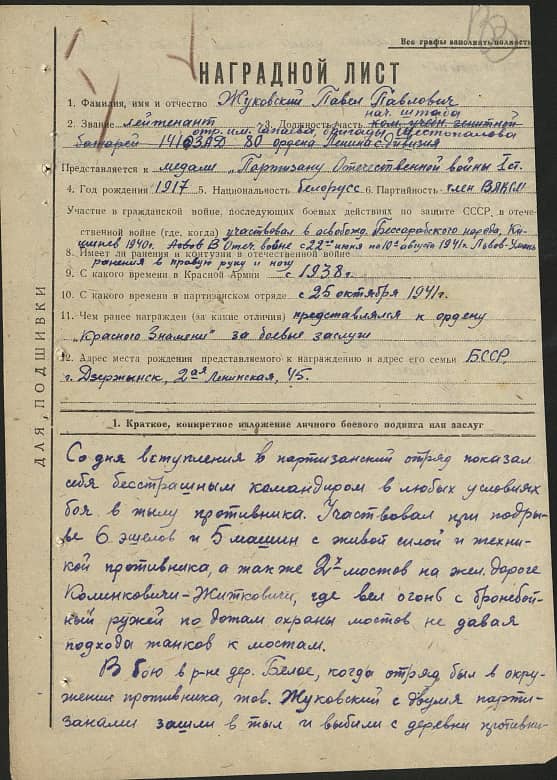 Все графы заполнять полность
НАГРАДНОЙ ЛИСТ
1. Фамилия, имя и отчество Жуковский Павел Павлович
нач. штаба
2. Звание лейтенант 3. Должность часть ком. зенитной
отр. им. Чапаева, бригады Шестопалова
батареи 141 ОЗАД 80 ордена Ленина с. дивизия
Представляется к медали „Партизану Отечественной войны I ст.
4. Год рождения 1917 5. Национальность белорусс 6. Партийность член ВЛКСМ
Участие в гражданской войне, последующих боевых действиях по защите СССР, в отече-
ственной войне (где, когда) участвовал в освобожд. Бессарабского народа, Ки-
шинев 1940г. В Отеч. войне с 22го июня по 10е августа 1941г. Львов-Умань
8. Имеет ли ранения и контузии в отечественной войне
ранения в правую руку и ногу
9. С какого времени в Красной Армии с 1938г.
10. С какого времени в партизанском отряде с 25 октября 1941г.
11. Чем ранее награжден (за какие отличия) представлялся к ордену
„Красного Знамени" за боевые заслуги
12. Адрес места рождения представляемого к награждению и адрес его семьи БССР,
г. Дзержынск, 2ая Ленинская, 45.
ДЛЯ ПОДШИВКИ
1. Краткое, конкретное изложение личного боевого подвига или заслуг
Со дня вступления в партизанский отряд показал
себя бесстрашным командиром в любых условиях
боя в тылу противника. Участвовал при подры-
ве 6 эшелов и 5 машин с живой силой и техни-
кой противника, а также 2х мостов на жел. дороге
Коминковичи-Житковичи, где вел огонь с бронебой-
ный ружей по дотам охраны мостов не давая
подхода танков к мостам.
В бою в р-не дер. Белое, когда отряд был в окру-
жении противника, тов. Жуковский с двумя парти-
занами зашли в тыл и выбили с деревни противни-